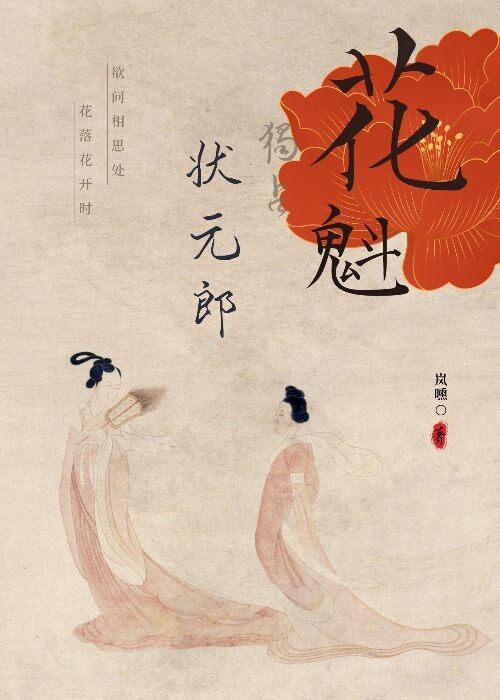 花魁
獨占
状元郎
欲问相思处
花落花开时
岚嚑〇 著